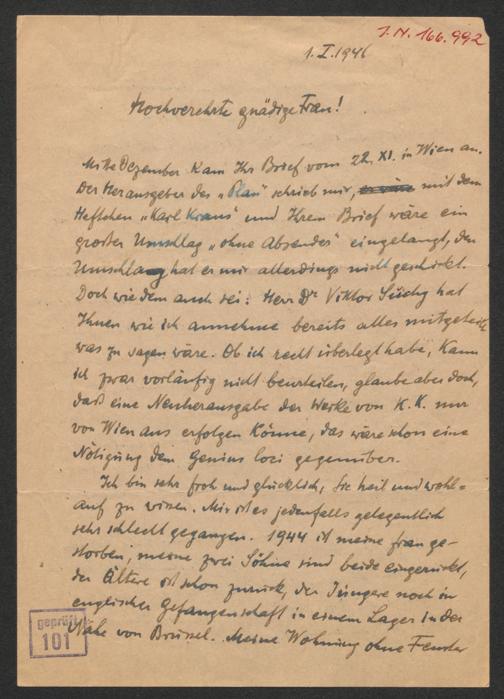 I.N. 166.992
1.I.1946
Hochverehrte gnädige Frau!
Mitte Dezember kam Ihr Brief vom 22.XI. in Wien an.
Der Herausgeber des „Plan" schrieb mir, mit dem
Heftchen „Karl Kraus" und Ihrem Brief wäre ein
großer Umschlag „ohne Absender" eingelangt, den
Umschlag hat er mir allerdings nicht geschickt.
Doch wie dem auch sei: Herr Dr Viktor Suchy hat
Ihnen wie ich annehme bereits alles mitgeteilt
was zu sagen wäre. Ob ich recht überlegt habe, kann
ich zwar vorläufig nicht beurteilen, glaube aber doch,
daß eine Neuherausgabe der Werke von K.K. nur
von Wien aus erfolgen könne, das wäre schon eine
Nötigung dem Genius loci gegenüber.
Ich bin sehr froh und glücklich, Sie heil und wohl=
auf zu wissen. Mir ist es jedenfalls gelegentlich
sehr schlecht gegangen. 1944 ist meine Frau ge-
storben, meine zwei Söhne sind beide eingerückt,
der Ältere ist schon zurück, der Jüngere noch in
englischer Gefangenschaft in einem Lager in der
Nähe von Brüssel. Meine Wohnung ohne Fenster
geprüft
101